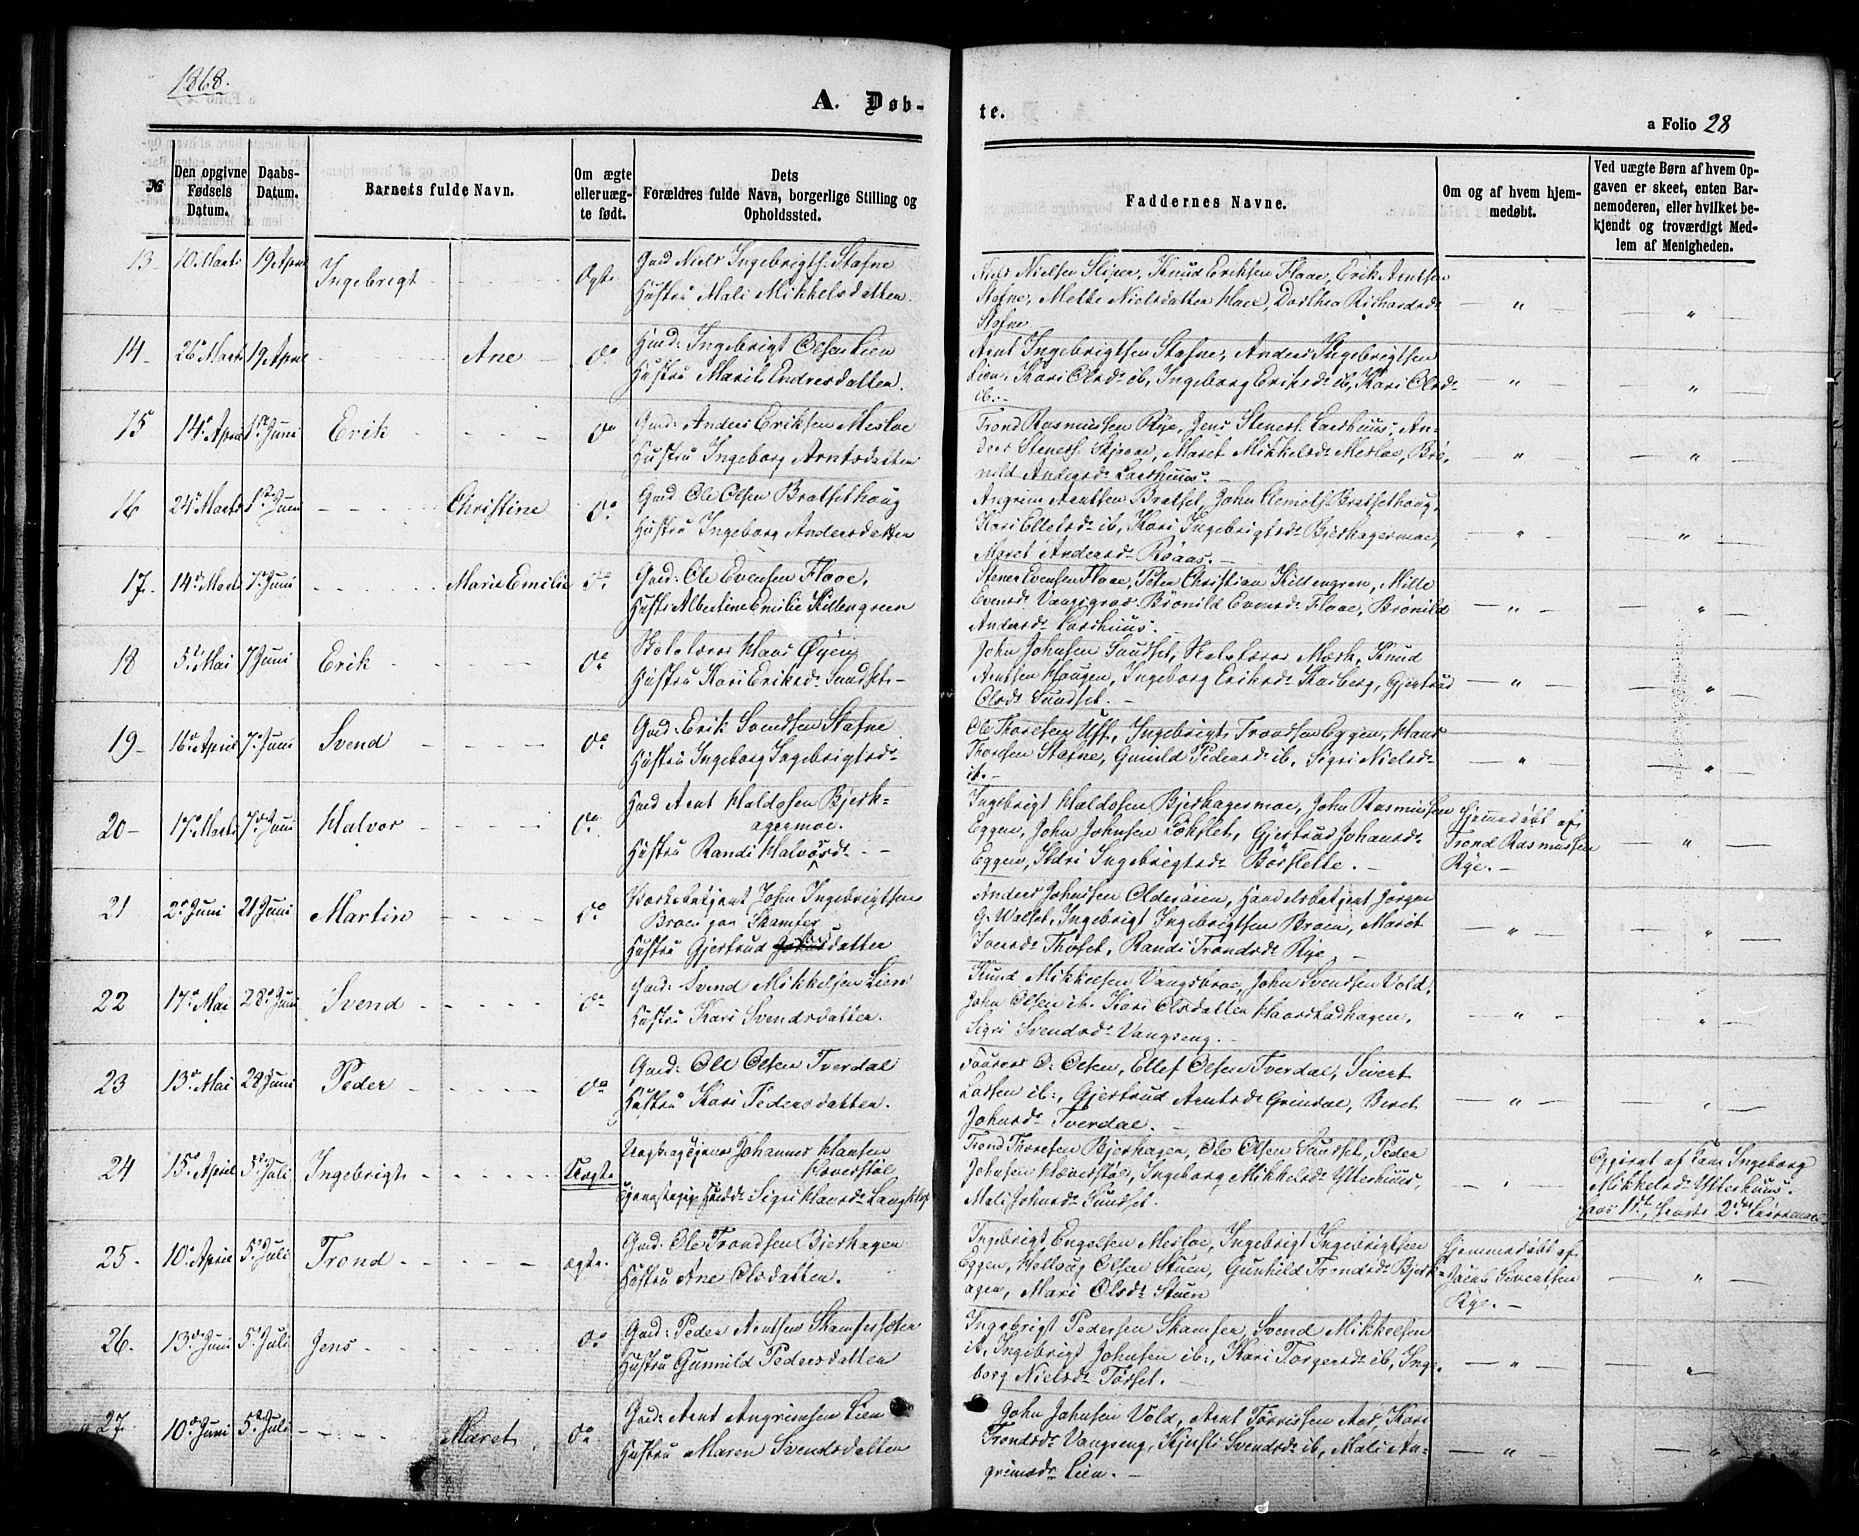 1868.
A. Døb-
te.
a Folio 28
№
Den opgivne
Fødsels
Datum.
Daabs-
Datum.
Barnets fulde Navn.
Om ægte
elleruæg-
te født.
Dets
Forældres fulde Navn, borgerlige Stilling og
Opholdssted.
Faddernes Navne.
Om og af hvem hjem-
medøbt.
Ved uægte Børn af hvem Op-
gaven er skeet, enten Bar-
nemoderen, eller hvilket be-
kjendt og troværdigt Med-
lem af Menigheden.
13 10 Marts 19 April Ingebrigt
Gmd Niels Ingebrigts. Stafne
Hustru Mali Mikkelsdatter.
Niels Nielsen Sliper, Knud Eriksen Flaae, Erik Arntsen
Stafne, Mette Nielsdatter Hace, Dorthea Richardsd:
Stafne
14 26 Marts 19 April Ane do
Hmd: Ingebrigt Olsen Lien
Hustru Marit Endresdatter.
Arnt Ingebrigtsen Stafne, Anders Ingebrigtsen
Lien, Kari Olsd: ib, Ingeborg Eriksd: ib, Kari Olsd:
ib.
15 14 April 1 Juni Erik do
Gmd: Anders Eriksen Mesloe
Hustru Ingeborg Arntsdatter
Trond Rasmussen Rye, Jens Steners. Laeshuus, An-
ders Steners. Skjevae, Maret Mikkelsd: Mesloe, Brö-
nild Andersd: Laeshuus.
16 24 Marts 1 Juni Christine do
Gmd Ole Olsen Bratsethoug
Hustru Ingeborg Andersdatter
Angrim Arntsen Bratset, John Clemets. Bratsethoug,
Kari Ellefsd: ib, Kari Ingebrigtsd: Bjerkagermoe,
Maret Andersd: Röaas.
17. 14 Marts 7 Juni Marie Emilie do
Gmd: Ole Evensen Flaae,
Hustr Albertine Emilie Kittengreen
Stener Evensen Flaae, Peter Christian Kittengren, Mille
Evensd: Vangsgrav. Brönild Evensd: Flaae, Brönild
Andersd: Laeshuus.
18 5 Mai 7 Juni Erik do
Skolelærer Hans Øyen
Hustru Kari Eriksd: Sundset
John Johnsen Sundset, Skolelærer Mærk, Knud
Arntsen Haugen, Ingeborg Eriksd: Kaeberg, Gjertrud
Olsd: Sundset.
19 16 April 7 Juni Svend do
Gmd: Erik Svendsen Stafne
Hustru Ingeborg Ingebrigtsd:
Ole Thoresen Uff, Ingebrigt Trondsen Eggen, Hans
Thoresen Stafne, Gunild Pedersd: ib, Sigri Nielsd:
ib.
20 17 Marts 7 Juni Halvor do
Gmd Arnt Haldosen Bjerk-
agermoe.
Hustru Randi Halvorsd:
Ingebrigt Haldosen Bjerkagermoe, John Rasmussen
Eggen, John Johnsen Löksлet, Gjertrud Johansd:
Eggen, Ildri Ingebrigtsd: Börslette.
Hjemmedøbt af
Trond Rasmussen
Rye.
21 2 Juni 21 Juni Martin do
John Ingebrigtsen
Broen paa Skamfer
Hustru Gjertrud datter
Anders Johnsen Olderøien, Handelsbetjent Jörgen
G. Walset, Ingebrigt Ingebrigtsen Broen, Marit
Iversd: Thøset, Randi Trondsd: Rye,
22 17 Mai 28 Juni Svend do
Gmd: Svend Mikkelsen Lien
Hustru Kari Svendsdatter.
Knud Mikkelsen Vangsbroe, John Svendsen Vold,
John Olsen ib. Kari Olsdatter Haarstadhagen,
Sigri Svendsd: Vangseng.
23 13 Mai 28 Juni Peder do
Gmd: Ole Olsen Tverdal
Hustru Kari Pedersdatter.
O: Olsen, Ellef Olsen Tverdal, Sivert
Larsen ib:, Gjertrud Arntsd: Grindal, Beret
Johnsd: Tverdal.
24 15 April 5 Juli Ingebrigt Uægte
Johannes Hansen
Haverstøl
Sigri Larsd: Langklop
Trond Thoresen Bjerkagen, Ole Olsen Sundset, Peder
Johnsen Hæverstøl, Ingeborg Mikkelsd: Ytterhuus,
Mali Johnsd: Sundset.
Opgivet af Ingeborg
Mikkelsd: Ytterhuus.
25. 10 April 5 Juli Trond ægte.
Gmd: Ole Trondsen Bjerkagen
Hustru Ane Olsdatter.
Ingebrigt Engelsen Mesloe, Ingebrigt Ingebrigtsen
Eggen, Hallvag Olsen Stuen, Gunhild Trondsd: Bjerk-
agen, Mari Olsd: Stuen
Hjemmedøbt af
Jacob Sivertsen
Rye.
26. 13 Juni 5 Juli Jens do
Gmd: Peder Arntsen Skamfersæter
Hustru Gunnild Pedersdatter
Ingebrigt Pedersen Skamfer, Svend Mikkelsen
ib, Ingebrigt Johnsen ib:, Kari Torgersd: ib, Inge-
borg Nielsd: Tørset.
27. 10 Juni 5 Juli Maret do
Gmd: Arnt Angrimsen Lien
Hustru Maren Svendsdatter
John Johnsen Vold, Arnt Törrisen Aas, Kari
Trondsd: Vangseng, Kjersti Svendsd: ib, Mali An-
grimsd: Lien.